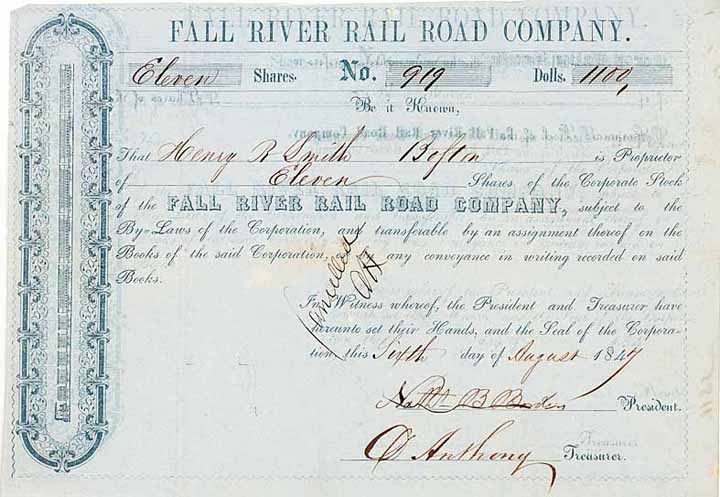 FALL RIVER RAIL ROAD COMPANY.
Eleven Shares. No. 919 Dolls. 1100,
Be it Known,
That Henry R Smith Boston is Proprietor
of Eleven Shares of the Corporate Stock
of the FALL RIVER RAIL ROAD COMPANY, subject to the
By-Laws of the Corporation, and transferable by an assignment thereof on the
Books of the said Corporation, or any conveyance in writing recorded on said
Books.
Cancelled
In Witness whereof, the President and Treasurer have
hereunto set their Hands, and the Seal of the Corpora-
tion, this Sixth day of August 1847
Nathl B Borden President.
D Anthony Treasurer.